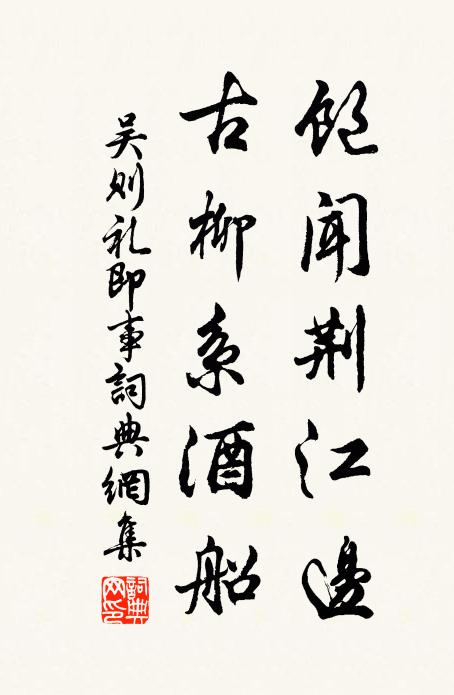 飽聞荆江邊
古柳系酒船
吴则礼即事詞典網集
詞典